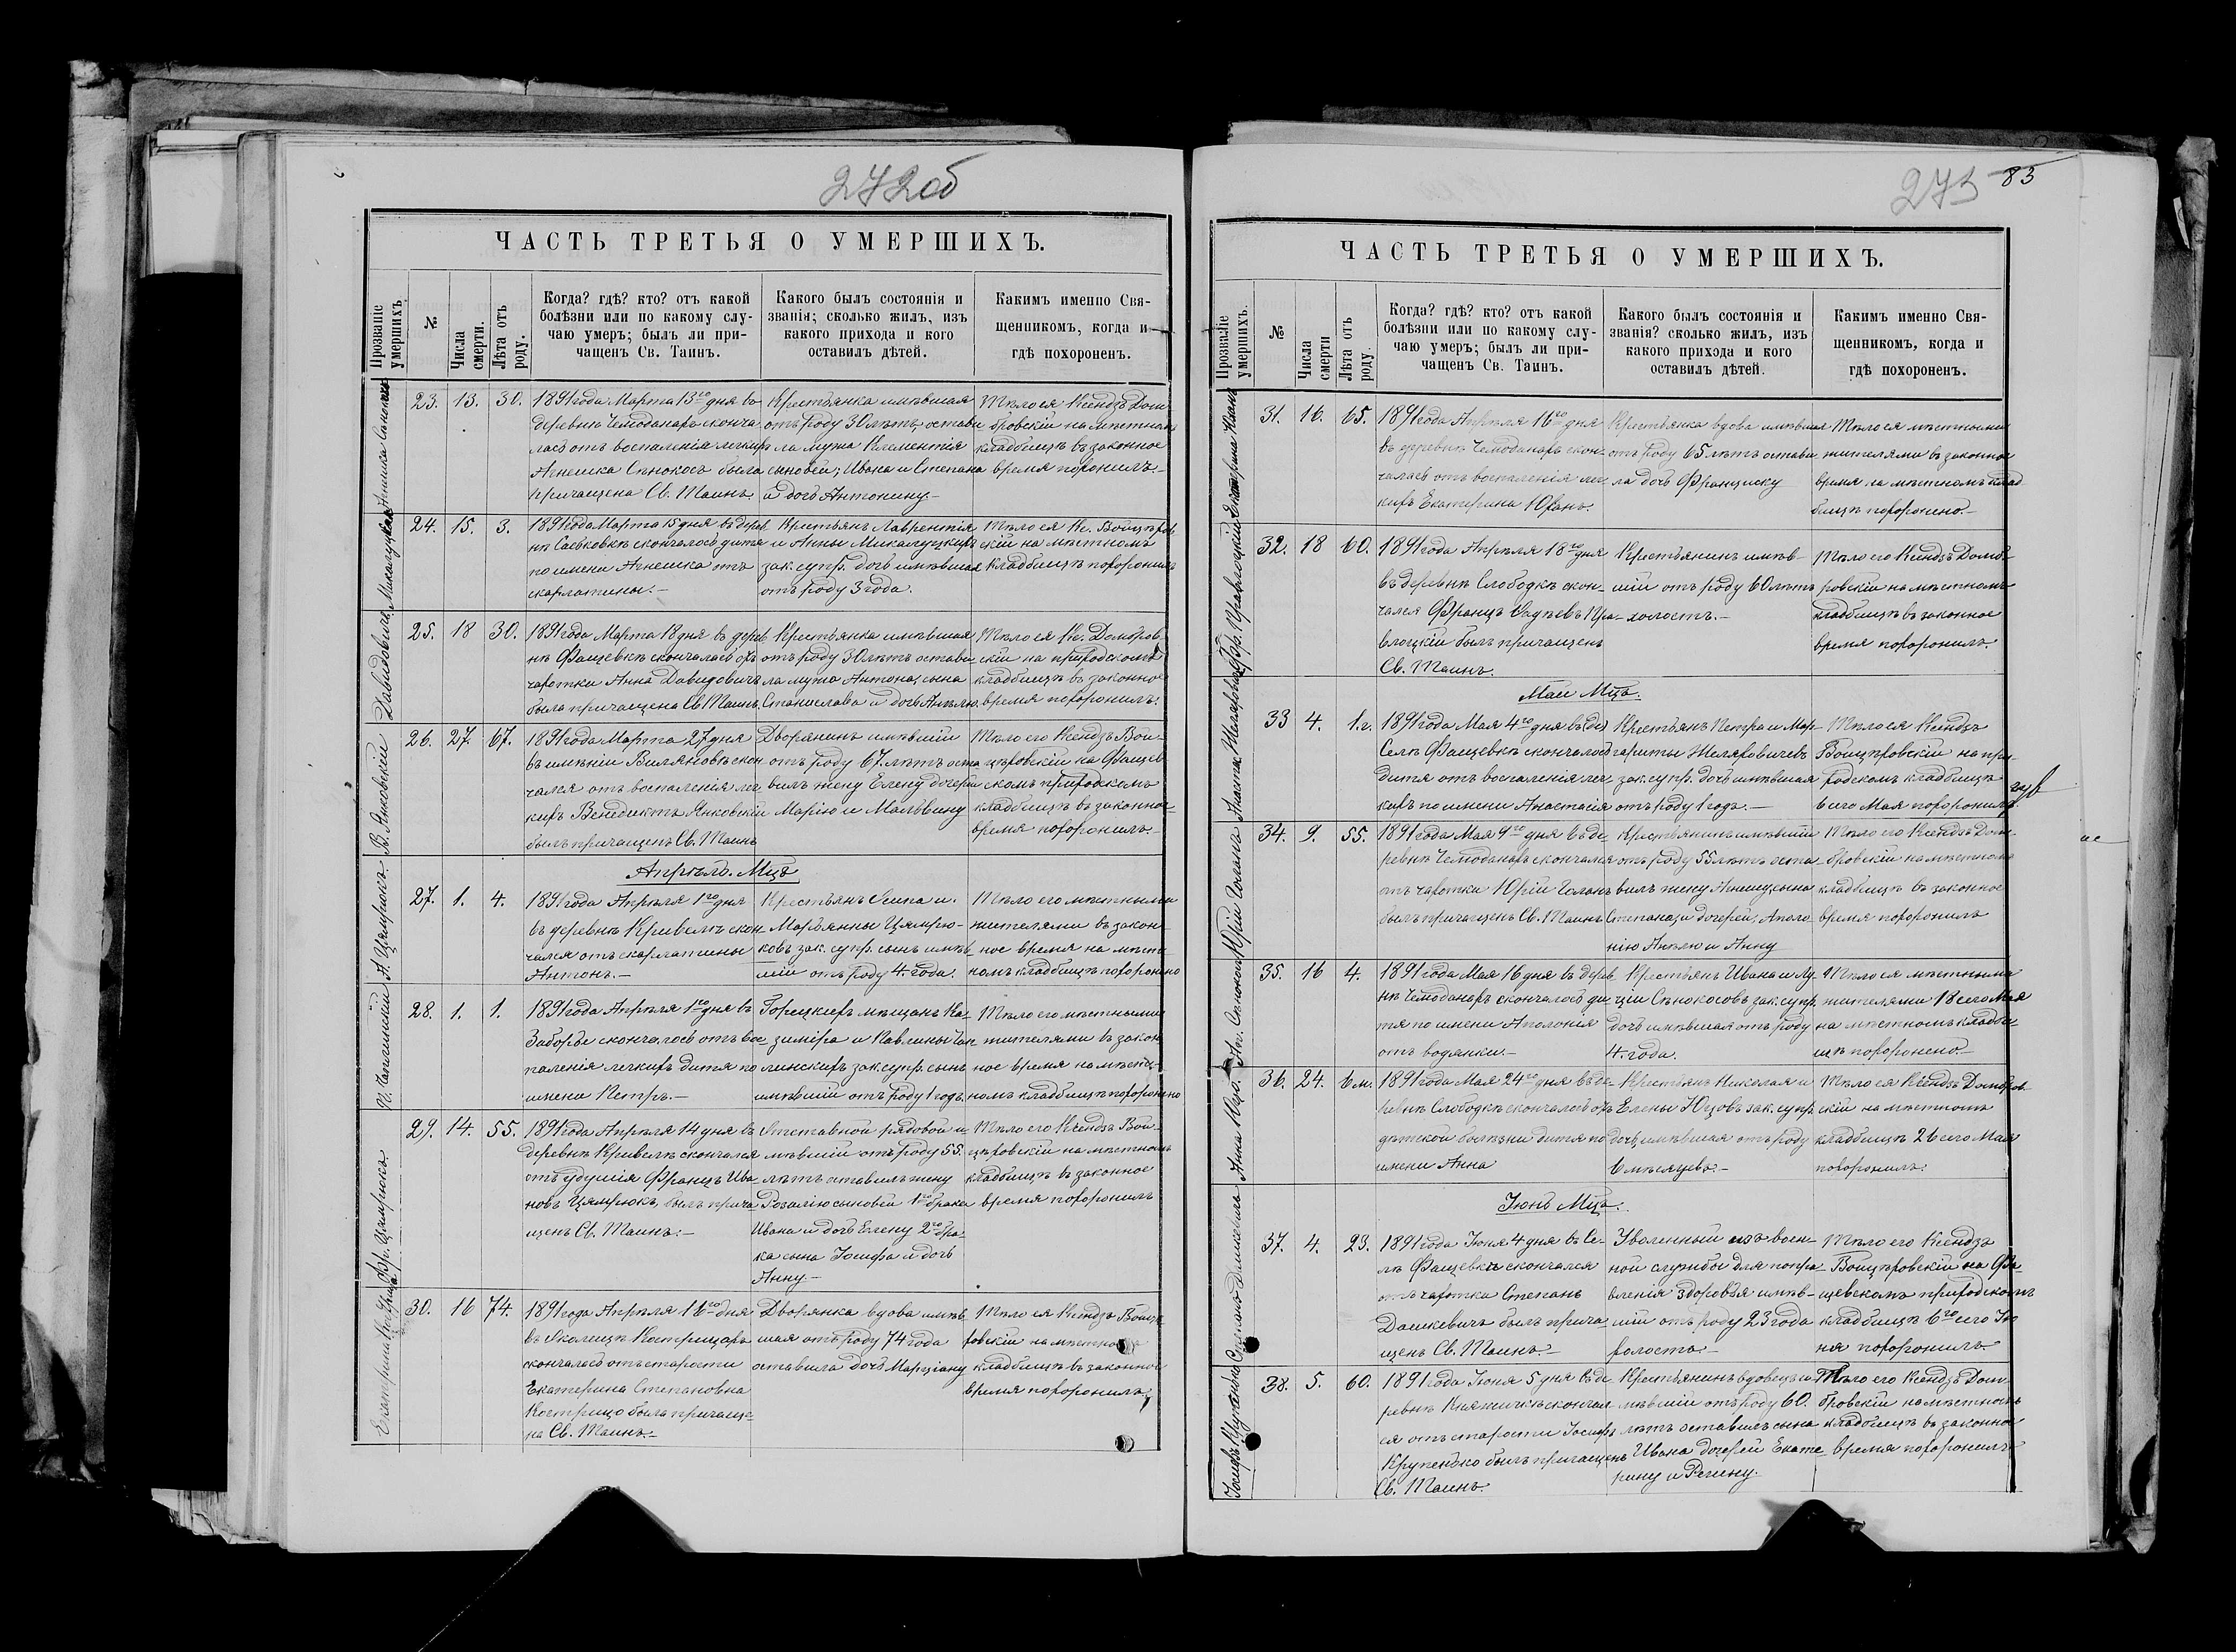 272об
ЧАСТЬ ТРЕТЬЯ О УМЕРШИХЪ.
Прозваніе умершихъ.
№
Числа смерти.
Лѣта отъ роду.
Когда? гдѣ? кто? отъ какой
болѣзни или по какому слу-
чаю умеръ; былъ ли при-
чащенъ Св. Таинъ.
Какого былъ состоянія и
званія; сколько жилъ, изъ
какого прихода и кого
оставилъ дѣтей.
Каким​ъ именно Свя-
щенникомъ, когда и
гдѣ похороненъ.
23. 13. 30.
1891 года Марта 13го дня въ
деревнѣ Чемоданахъ сконча
лась отъ воспаленія легкихъ
Агнешка Сѣнокосъ была
причащена Св. Таинъ
Крестьянка имѣвшая
отъ роду 30 лѣтъ, остави
ла мужа Климентія
сыновей; Ивана и Степана
и дочь Антонину.-
Тѣло ея Ксендзъ Дом
бровскій на мѣстномъ
кладбищѣ въ законное
время похоронилъ.-
24. 15. 3.
1891 года Марта 15 дня въ дерев
нѣ Саевковкѣ скончалось дитя
по имени Агнешка отъ
скарлатины.-
Крестьянъ Лаврентія
и Анны Микалуцкихъ
зак. супр. дочь имѣвшая
отъ роду 3 года.
Тѣло ея Кс. Войцѣхов
скій на мѣстномъ
кладбищѣ похоронилъ
Давидовичъ
25. 18 30.
1891 года Марта 18 дня въ дерев
нѣ Фащевкѣ скончалась отъ
чахотки Анна Давидовичъ
была причащена Св. Таинъ.
Крестьянка имѣвшая
отъ роду 30 лѣтъ остави
ла мужа Антона, сына
Станислава и дочь Анѣлю.
Тѣло ея Кс. Домбров
скій на приходскомъ
кладбищѣ въ законное
время похоронилъ.
В. Янковскій
26. 27. 67.
1891 года Марта 27 дня
въ имѣніи Виляновѣ скон
чался отъ воспаленія лег
кихъ Венедиктъ Янковскій
былъ причащенъ Св. Таинъ
Дворянинъ имѣвшій
отъ роду 67 лѣтъ оста
вилъ жену Елену дочери
Марію и Мальвину
Тѣло его Ксендзъ Вой-
цѣховскій на Фащев
скомъ приходскомъ
кладбищѣ въ законное
время похоронилъ.-
Апрѣль. Мцъ
А. Цямрюкъ.
27. 1. 4.
1891 года Апрѣля 1го дня
въ деревнѣ Кривелѣ скон
чался отъ скарлатины
Антонъ.-
Крестьянъ Осипа и
Марьянны Цямрю-
ковъ зак. супр. сынъ имѣв
шій отъ роду 4 года.
Тѣло его мѣстными
жителями въ закон
ное время на мѣст
номъ кладбищѣ похоронено
28. 1. 1.
1891 года Апрѣля 1го дня въ
Заборье скончалось отъ вос
паленія легкихъ дитя по
имени Петръ.-
Горецкихъ мѣщанъ Ка-
зиміра и Павлины Чап
линскихъ зак. супр. сынъ
имѣвшій отъ роду 1 годъ.
Тѣло его мѣстными
жителями въ закон
ное время на мѣст-
номъ кладбищѣ похоронено
Фр. Цямрюкъ
29. 14. 55.
1891 года Апрѣля 14 дня въ
деревнѣ Кривелѣ скончался
отъ удушія Францъ Ива
новъ Цямрюкъ, былъ прича
щенъ Св. Таинъ.-
Отставной рядовой и-
мѣвшій отъ роду 55.
лѣтъ оставилъ жену
Розалію сыновей 1го брака
Ивана и дочь Елену 2го бра-
ка сына Іосифа и дочь
Анну-
Тѣло его Ксендзъ Вой-
цѣховскій на мѣстномъ
кладбищѣ въ законное
время похоронилъ
30. 16 74.
1891 года Апрѣля 16го дня
въ Околицѣ Кострицахъ
скончалась отъ старости
Екатерина Степановна
Кострицо была причаще-
на Св. Таинъ.-
Дворянка вдова имѣв
шая отъ роду 74 года
оставила дочь Марціану
Тѣло ея Ксендзъ Войцѣ
ховскій на мѣстномъ
кладбищѣ въ законное
время похоронилъ.
273
83
ЧАСТЬ ТРЕТЬЯ О УМЕРШИХЪ.
Прозваніе умершихъ.
№
Числа смерти
Лѣта отъ роду.
Когда? гдѣ? кто? отъ какой
болѣзни или по какому слу-
чаю умеръ; былъ ли при-
чащенъ Св. Таинъ.
Какого былъ состоянія и
званія? сколько жилъ, изъ
какого прихода и кого
оставилъ дѣтей.
Какимъ именно Свя-
щенникомъ, когда и
гдѣ похороненъ.
31. 16. 65.
1891 года Апрѣля 16го дня
въ деревнѣ Чемоданахъ скон-
чалась отъ воспаленія лег-
кихъ Екатерина Юханъ.
Крестьянка вдова имѣвшая
отъ роду 65 лѣтъ остави
ла дочь Франциску
Тѣло ея мѣстными
жителями въ законное
время на мѣстномъ клад
бищѣ похоронено.-
32. 18 60.
1891 года Апрѣля 18го дня
въ деревнѣ Слободкѣ скон-
чался Францъ Фадѣевъ Пра-
влоцкій былъ причащенъ
Св. Таинъ.
Крестьянинъ имѣв-
шій отъ роду 60 лѣтъ
холостъ.-
Тѣло его Ксендзъ Домб-
ровскій на мѣстномъ
кладбищѣ въ законное
время похоронилъ.
Маи Мцъ.
33 4. 1.г.
1891 года Мая 4го дня въ
Селѣ Фащевкѣ скончалось
дитя отъ воспаленія лег
кихъ по имени Анастасія
Крестьянъ Петра и Мар-
гариты Желяровичевъ
зак. супр. дочь имѣвшая
отъ роду 1 годъ.-
Тѣло ея Ксендзъ
Войцѣховскій на при-
ходскомъ кладбищѣ
6 сего Мая похоронилъ.
34. 9. 55.
1891 года Мая 9го дня въ де-
ревнѣ Чемоданахъ скончался
отъ чахотки Юрій Голанъ
былъ причащенъ Св. Таинъ
Крестьянинъ имѣвшій
отъ роду 55 лѣтъ оста
вилъ жену Агнешу, сына
Степана, и дочерей, Аполо
нію Анѣлю и Анну
Тѣло его Ксендзъ Дом-
бровскій на мѣстномъ
кладбищѣ въ законное
время похоронилъ
35. 16 4.
1891 года Мая 16 дня въ дерев
нѣ Чемоданахъ скончалось ди
тя по имени Аполонія
отъ водянки.-
Крестьянъ Ивана и Лу-
ціи Сѣнокосовъ зак. супр.
дочь имѣвшая отъ роду
4. года.
Тѣло ея мѣстными
жителями 18 сего Мая
на мѣстномъ кладби-
щѣ похоронено.-
36. 24. 6 м.
1891 года Мая 24го дня въ де-
ревнѣ Слободкѣ скончалось отъ
дѣтской болѣзни дитя по
имени Анна
Крестьянъ Николая и
Елены Юцовъ зак. супр.
дочь, имѣвшая отъ роду
6 мѣсяцевъ.-
Тѣло ея Ксендзъ Домбров-
скій на мѣстномъ
кладбищѣ 26 сего Мая
похоронилъ.
Іюнь Мцъ.
37. 4. 23.
1891 года Іюня 4 дня въ Се-
лѣ Фащевкѣ скончался
отъ чахотки Степанъ
Дашкевичъ былъ прича-
щенъ Св. Таинъ.-
Уволенный изъ воен-
ной службы для попра-
вленія здоровья имѣв-
шій отъ роду 23 года
холостъ.-
Тѣло его Ксендзъ
Войцѣховскій на Фа-
щевскомъ приходскомъ
кладбищѣ 6го сего Ію
ня похоронилъ.
38. 5. 60.
1891 года Іюня 5 дня въ де
ревнѣ Княжичкѣ скончал
ся отъ старости Іосифъ
Крупенько былъ причащенъ
Св. Таинъ.
Крестьянинъ вдовецъ и-
мѣвшій отъ роду 60.
лѣтъ оставилъ сына
Ивана дочерей Екате
рину и Регину.
Тѣло его Ксендзъ Дом-
бровскій на мѣстномъ
кладбищѣ въ законное
время похоронилъ.